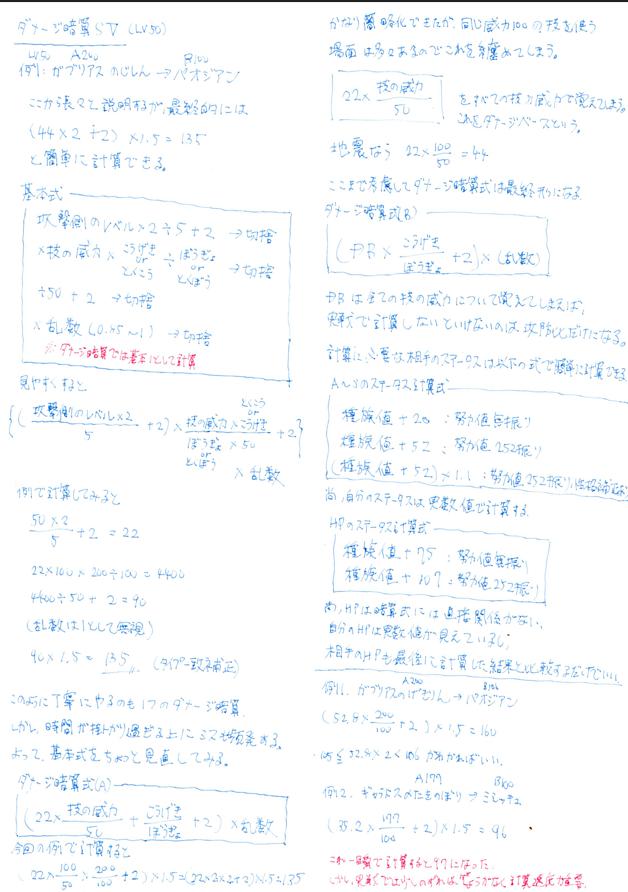 ダメージ暗算SV (LV50)
LV50 A200 B100
例1:ガブリアスのじしん→パオジアン
ここから長々と説明するが、最終的には
(44×2+2)×1.5=135
と簡単に計算できる。
基本式
攻撃側のレベル×2÷5+2 →切捨
×技の威力×こうげき or とくこう ÷ ぼうぎょ or とくぼう →切捨
÷50+2 →切捨
×乱数(0.85~1) →切捨
※ダメージ暗算では基本1として計算
見やすくすると
{(攻撃側のレベル×2/5+2)×技の威力×こうげき or とくこう/ぼうぎょ or とくぼう×50+2}
×乱数
例で計算してみると
50×2/5+2=22
22×100×200÷100=4400
4400÷50+2=90
(乱数は1として無視)
90×1.5=135 (タイプ一致補正)
このように丁寧にやるのも1つのダメージ暗算
しかし、時間が掛かり過ぎる上にミスも頻発する。
よって、基本式をちょっと見直してみる。
ダメージ暗算式(A)
(22×技の威力/50+こうげき/ぼうぎょ+2)×乱数
今回の例で計算すると
(22×100/50×200/100+2)×1.5=(22×2×2+2)×1.5=135
かなり簡略化できたが、同じ威力100の技を使う
場面は多々あるのでこれを
22×技の威力/50 をすべての技の威力で覚えてしまう。
これをダメージベースという。
地震なら 22×100/50=44
ここまで考慮してダメージ暗算式は最終形になる
ダメージ暗算式(B)
(DB×こうげき/ぼうぎょ+2)×(乱数)
DBは全ての技の威力について覚えてしまえば、
実戦で計算しないといけないのは攻防比だけになる。
計算に必要な相手のステータスは以下の式で簡単に計算できる
A~Sのステータス計算式
種族値+20:努力値無振り
種族値+52:努力値252振り
(種族値+52)×1.1:努力値252振り、性格補正あり
尚、自分のステータスは実数値で計算する。
HPのステータス計算式
種族値+75:努力値無振り
種族値+107:努力値252振り
尚、HPは暗算式には直接関係がない、
自分のHPは実数値が見えているし、
相手のHPも最後に計算した結果と比較するだけでいい。
A200 B100
例1. ガブリアスのげきりん→パオジアン
(52.8×200/100+2)×1.5=160
105≦52.8×2≦106がわかればいい。
A177 B100
例2. ギャラドスのたきのぼり→ミミッキュ
(35.2×177/100+2)×1.5=96
これ、一瞬で計算すると97になった